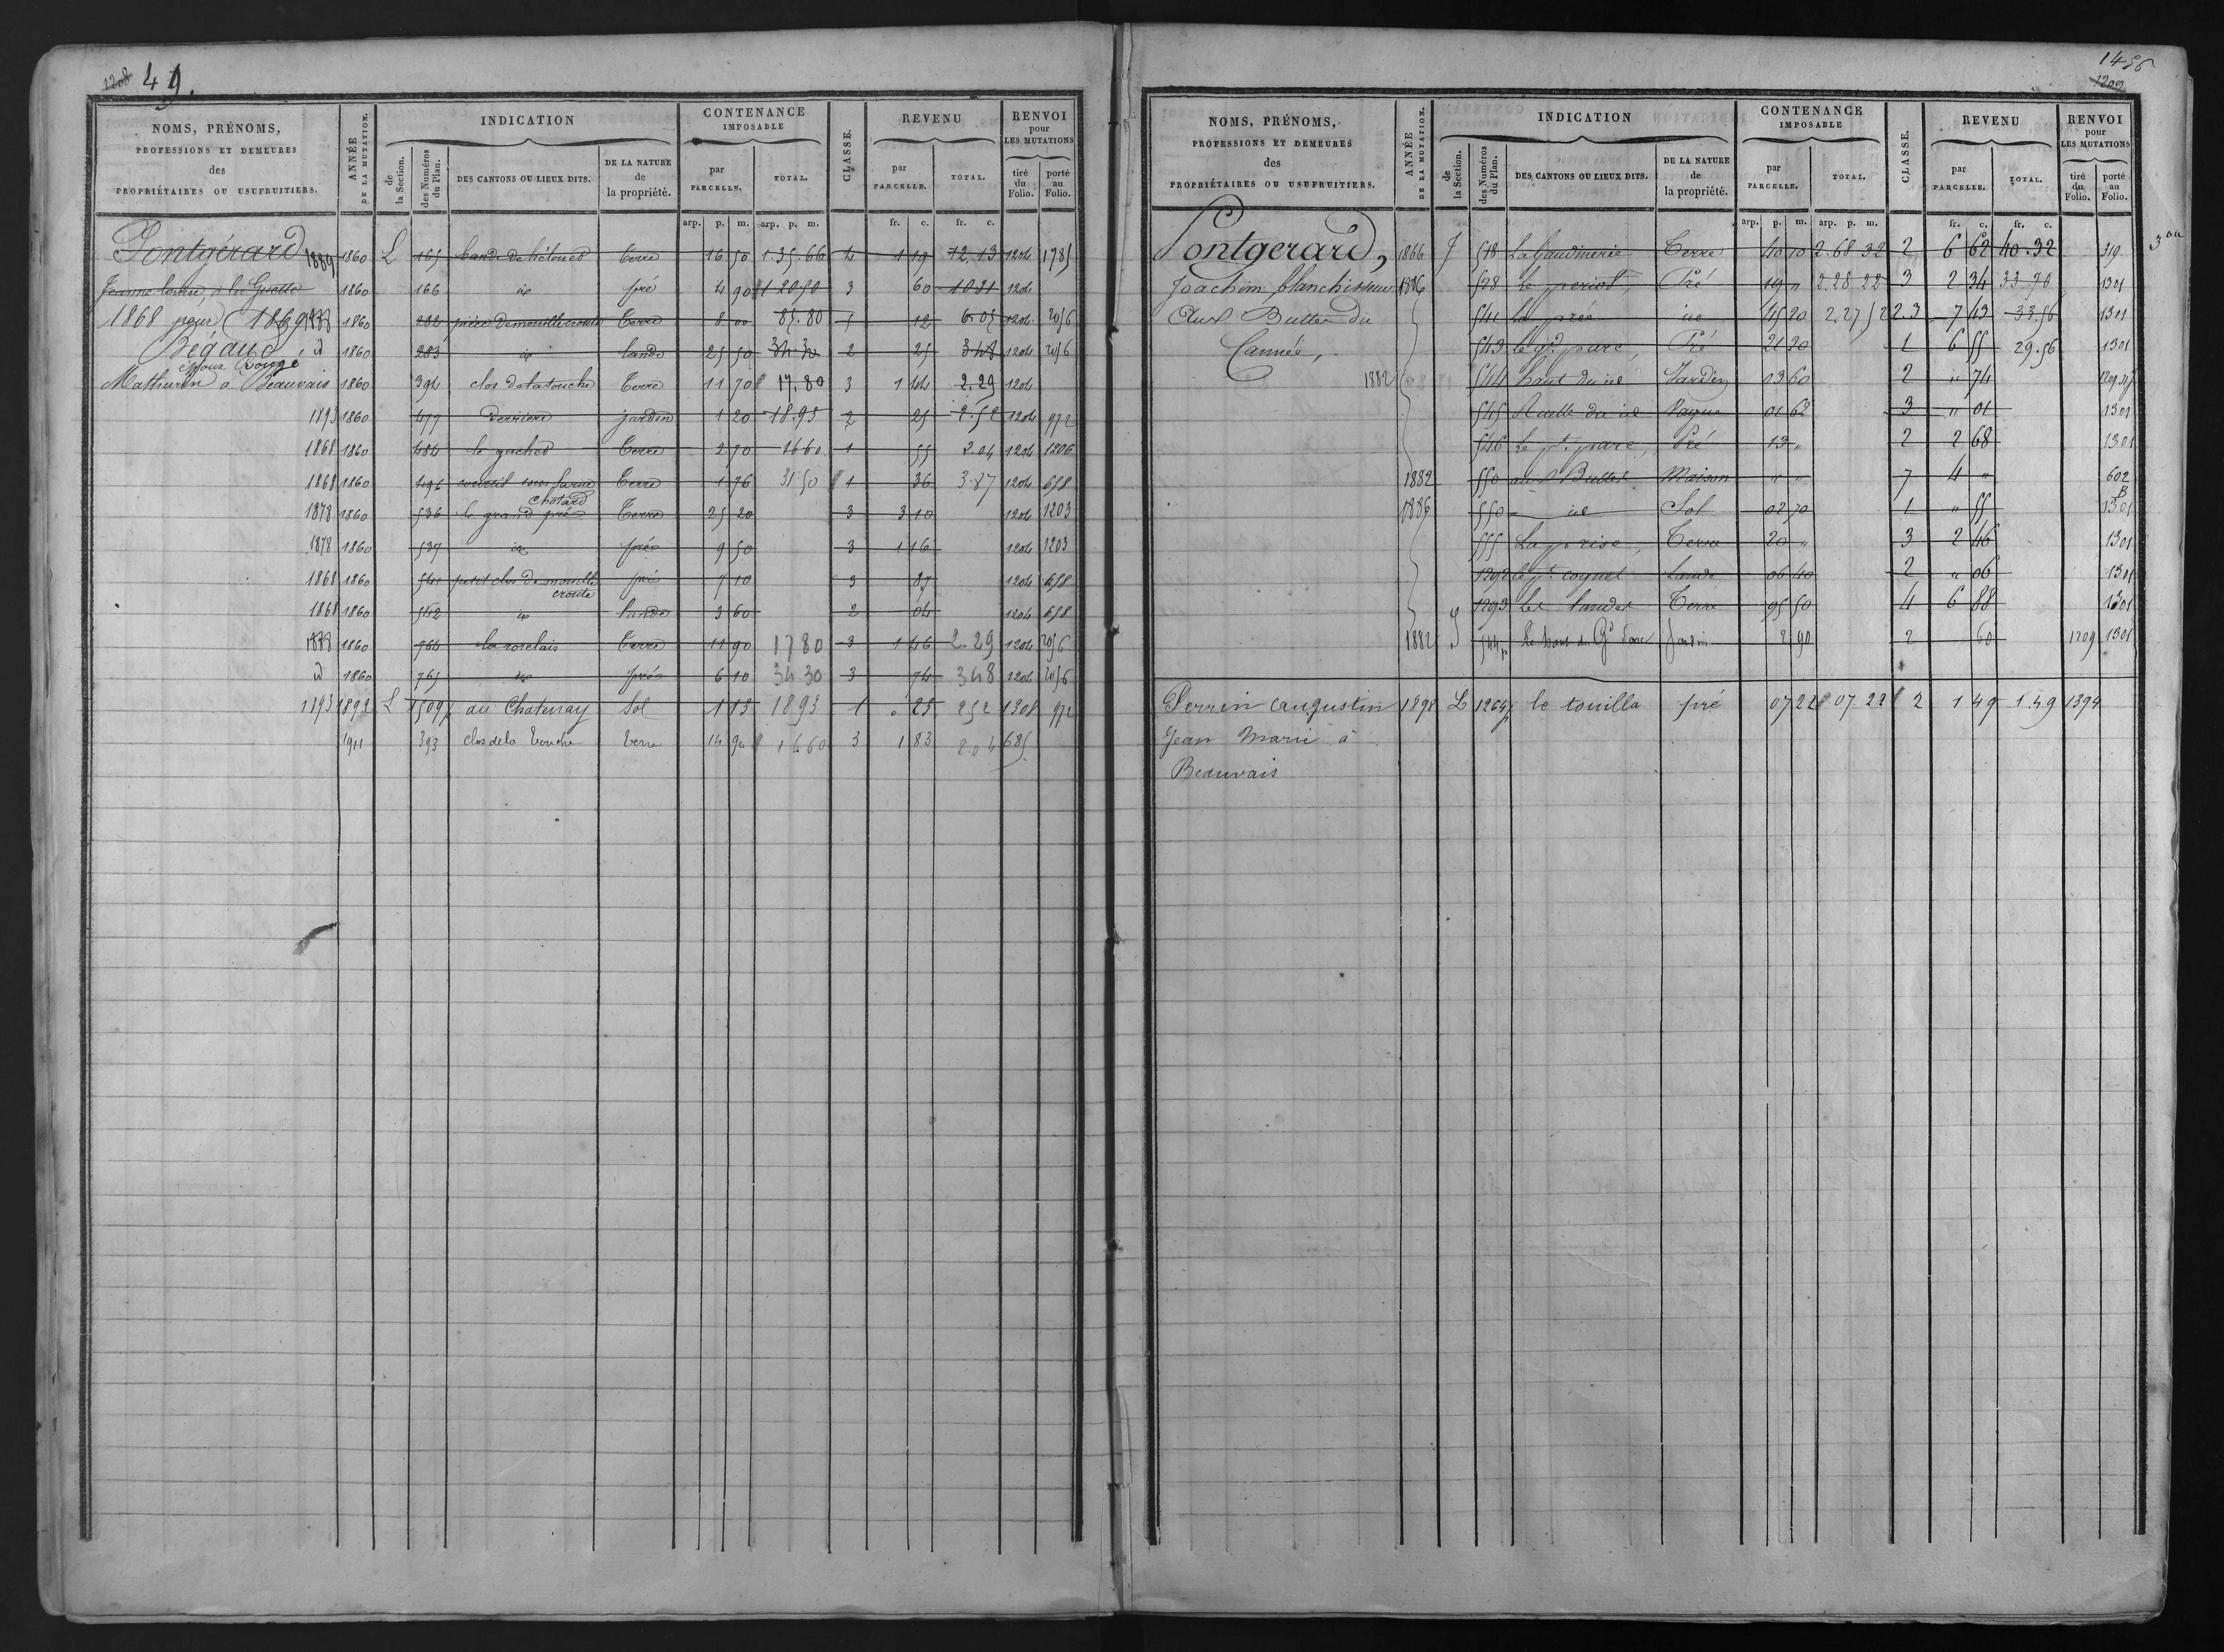 1208 49.
NOMS, PRÉNOMS, PROFESSIONS ET DEMEURES des PROPRIÉTAIRES OU USUFRUITIERS.
ANNÉE DE LA MUTATION.
INDICATION
de la Section.
des Numéros du Plan.
DES CANTONS OU LIEUX DITS.
DE LA NATURE de la propriété.
CONTENANCE IMPOSABLE
par PARCELLE.
TOTAL.
CLASSE.
REVENU
par PARCELLE.
TOTAL.
RENVOI pour LES MUTATIONS
tiré du Folio.
porté au Folio.
arp. p. m. arp. p. m. fr. c. fr. c.
Pontgérard 1889 1860 L 165 terre 16 50 1.35.66 4 1 19 12.13 1204 1785
Jeanne Louise, à la 1860 166 id pré 4 90 3 60 1204
1868 pour 1869 1860 282 terre 8 00 85.80 5 12 6.05 1204 2056
Begaud id 1860 283 id lande 25 50 2 25 3.48 1204 2056
épouse Bougé
Mathurin à Beauvais 1860 394 clos de la touche terre 11 70 17.80 3 1 44 2.29 1204
1893 1860 477 Derrière jardin 1 20 18.93 2 25 2.52 1204 972
1868 1860 484 terre 2 70 1660 1 55 2.04 1204 1206
1868 1860 496 terre 1 76 31.50 1 36 3.87 1204 658
chotard
1878 1860 536 le grand pré terre 25 20 3 3 10 1204 1203
1878 1860 537 id pré 9 50 3 1 16 1204 1203
1868 1860 541 petit clos de mouille croute pré 7 10 3 87 1204 658
1868 1860 542 id lande 3 60 2 04 1204 658
1860 764 la roselais terre 11 90 1780 3 1 46 2.29 1204 2056
id 1860 765 id pré 6 10 34 30 3 74 348 1204 2056
1893 1892 L 1509p au Chatenay Sol 1 13 1893 1 23 252 1308 972
1911 393 clos de la Touche terre 14 90 1660 3 1 83 2.04 685
1456
1209
NOMS, PRÉNOMS, PROFESSIONS ET DEMEURES des PROPRIÉTAIRES OU USUFRUITIERS.
ANNÉE DE LA MUTATION.
INDICATION
de la Section.
des Numéros du Plan.
DES CANTONS OU LIEUX DITS.
DE LA NATURE de la propriété.
CONTENANCE IMPOSABLE
par PARCELLE.
TOTAL.
CLASSE.
REVENU
par PARCELLE.
TOTAL.
RENVOI pour LES MUTATIONS
tiré du Folio.
porté au Folio.
arp. p. m. arp. p. m. fr. c. fr. c.
Pontgerard, 1866 J 518 La Gaudinerie Terre 40 10 2.68.32 2 6 62 40.32 319
Joachim blanchisseur 1886 528 Le periot, Pré 19 " 2.28.22 3 2 34 33.70 1301
Aux Buttes du 541 La prée id 45 20 2.27.52 2.3 7 43 33.56 1301
Cannée, 543 Le gd. parc, Pré 21 20 1 6 55 29.56 1301
1882 544 haut du id Jardin 03 60 2 " 74
545 Ruelle du id Vague 01 62 3 " 01 1301
546 Le pt. parc, Pré 13 " 2 2 68 1301
1882 550 aux Buttes Maison " " 7 4 " 602
1886 550 id Sol 02 70 1 " 55 1301
555 La prise, Terre 20 " 3 2 46 1301
1292 le pt. coquet Lande 06 40 2 " 06 1301
1293 Les landes Terre 95 50 4 6 88 1301
1882 J 544p Le haut du Gd Parc Jardin 2 90 2 60 1209 1301
Perrin augustin 1898 L 1264p le touilla pré 07 22 07.22 2 1 49 1.49 1394
Jean Marie à
Beauvais